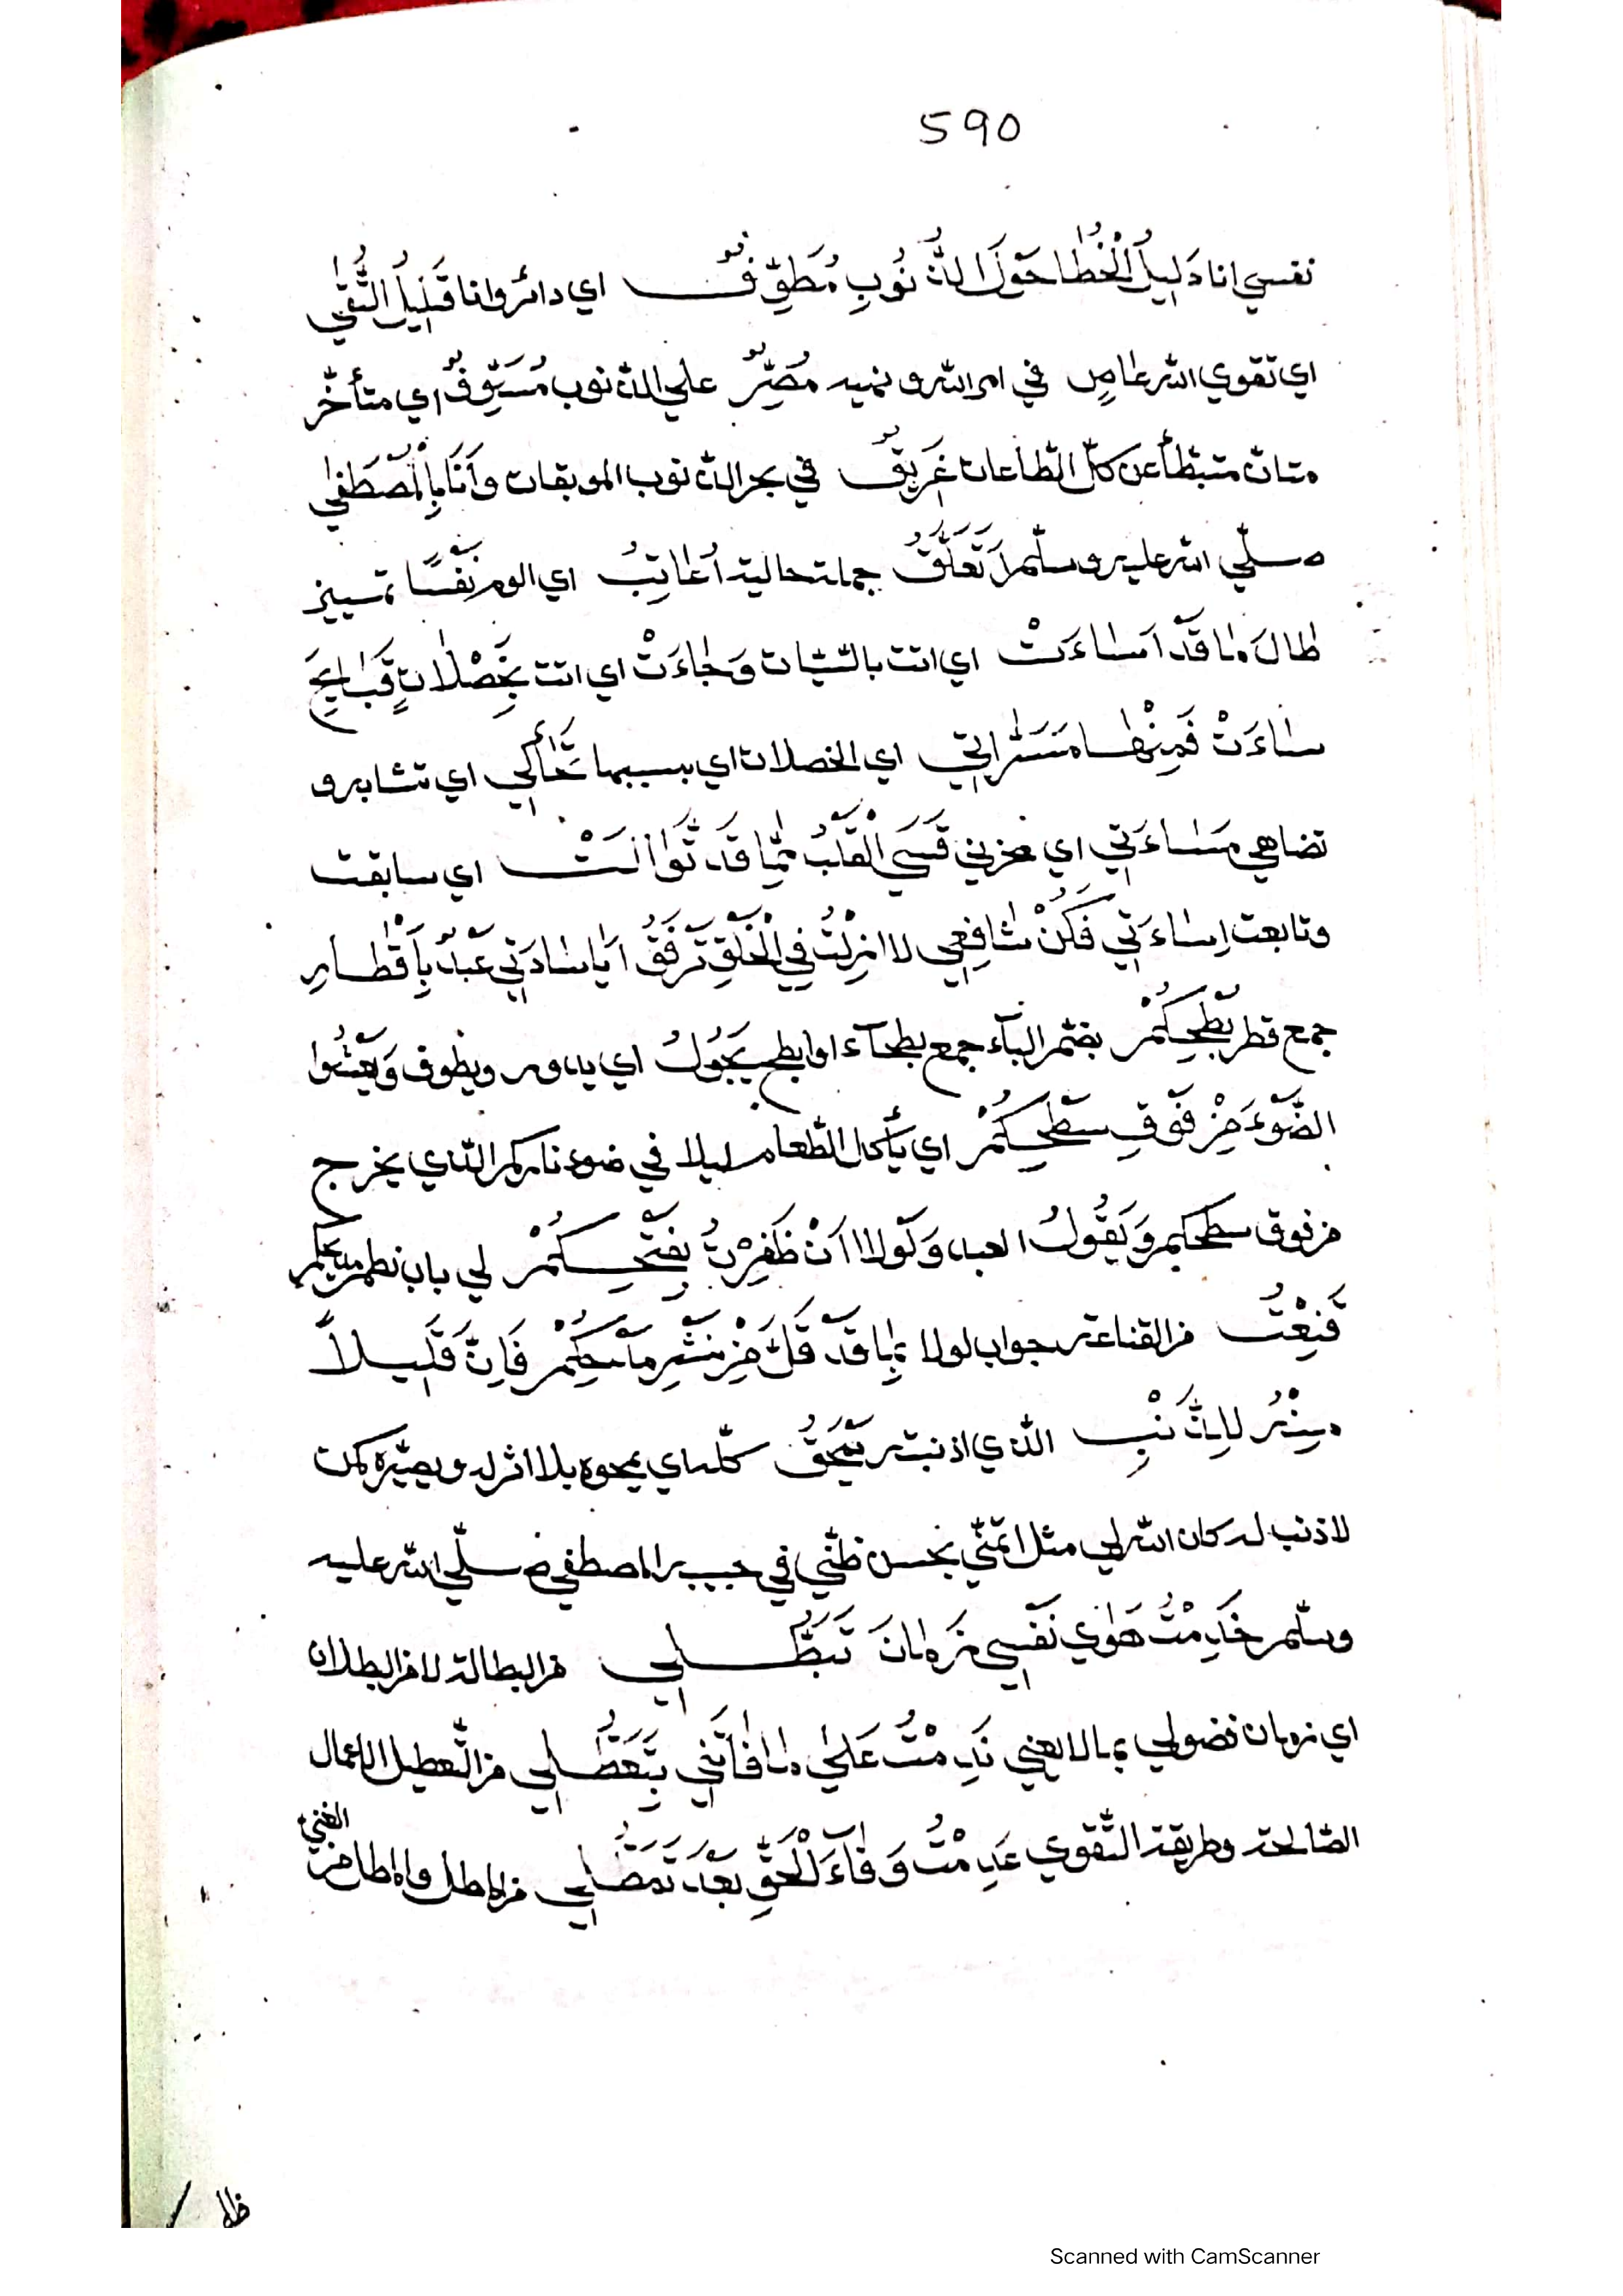 590
نفسي انا دَلِيلُ الْخُطَا حَوْلَ الذُّنُوبِ مُطَوِّفٌ اي دائر وانا قَلِيلُ التُّقٰي
اي تقوي الله عاصٍ في امر الله و نهيه مُصِرٌّ علي الذنوب مُسَوِّفٌ اي متأخّر
متبطّأ عن كلّ الطّاعات غَرِيقٌ في بحر الذنوب الموبقات وَاَنَا بِالْمُصْطَفٰي
صلّي الله عليه وسلّم اَتَعَلَّقُ جملة حالية اُعَاتِبُ اي الوم نَفْسًا تمييز
طَالَ مَا قَدْ اَسَاءَتْ اي اتت بالسّيّات وَجَاءَتْ اي اتت بِخَصْلَاتٍ قَبَايِحَ
سَاءَتْ فَمِنْهَا مَسَرَّاتِي اي الخصلات اي بسببها تَحَاكِي اي تشابه و
تضاهي مَسَاءَتِي اي حزني قَسَي الْقَلْبُ مِمَّا قَدْ تَوَالَتْ اي سابقت
وتابعت اِسَاءَتِي فَكُنْ شَافِعِي لا زِلْتُ فِي الْخَلْقِ تَرْفَقُ اَيَا سَادَتِي عَبْدٌ بِاَقْطَارِ
جمع قطر بُطْحِكُمْ بضمّ البآء جمع بطحآء او ابطح يَجُولُ اي يدور ويطوف وَيَعْشُوا
الضَّوْءَ مِنْ فَوْقِ سَطْحِكُمْ اي يأكل الطّعام ليلا في ضوء ناركم الّذي يخرج
من فوق سطحكم وَيَقُولُ العبد وَلَوْلَا اَنْ ظَفِرْتُ بِفَتْحِكُمْ لي باب نظم مديحكم
قَنِعْتُ من القناعة جواب لولا بِمَا قَدْ قَلَّ مِنْ نَشْرِ مَدْحِكُمْ فَاِنَّ قَلِيلًا
مِنْهُ لِلذَّنْبِ الّذي اذنبته يَمْحَقُ كلّه اي يمحوه بلا اثر له ويصيّره كمن
لا ذنب له كان الله لي مثل اتمنّي بحسن ظنّي في حبيبه المصطفي صلّي الله عليه
وسلّم خَدِمْتُ هَوٰي نَفْسِي زَمَانَ تَبَطُّلِي من البطالة لا من البطلان
اي زمان فضولي بما لا يعني نَدِمْتُ عَلَيٰ مَا فَاتَنِي بِتَعَطُّلِي من التّعطيل الاعمال
الصّالحة وطريقة التّقوي عَدِمْتُ وَفَاءَ الْحَقِّ بَعْدَ تَمَطُّلِي من المطل والمطل من
الغنيّ
Scanned with CamScanner